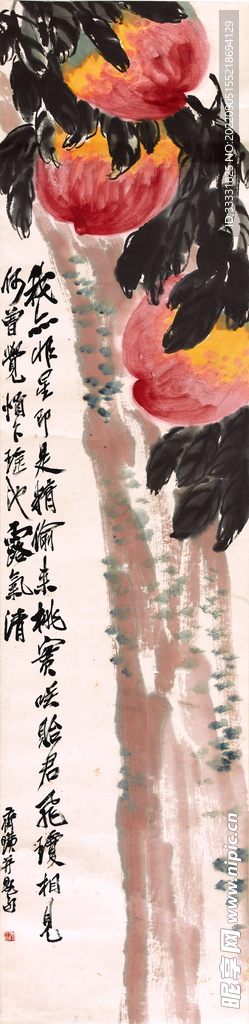 我亦非星即是精偷来桃实咲贻君飞琼相见
何曾觉悄下瑶池露气清
齐璜并题句
昵享网 www.nipic.cn
ID:33331825 NO:20220905155218694129